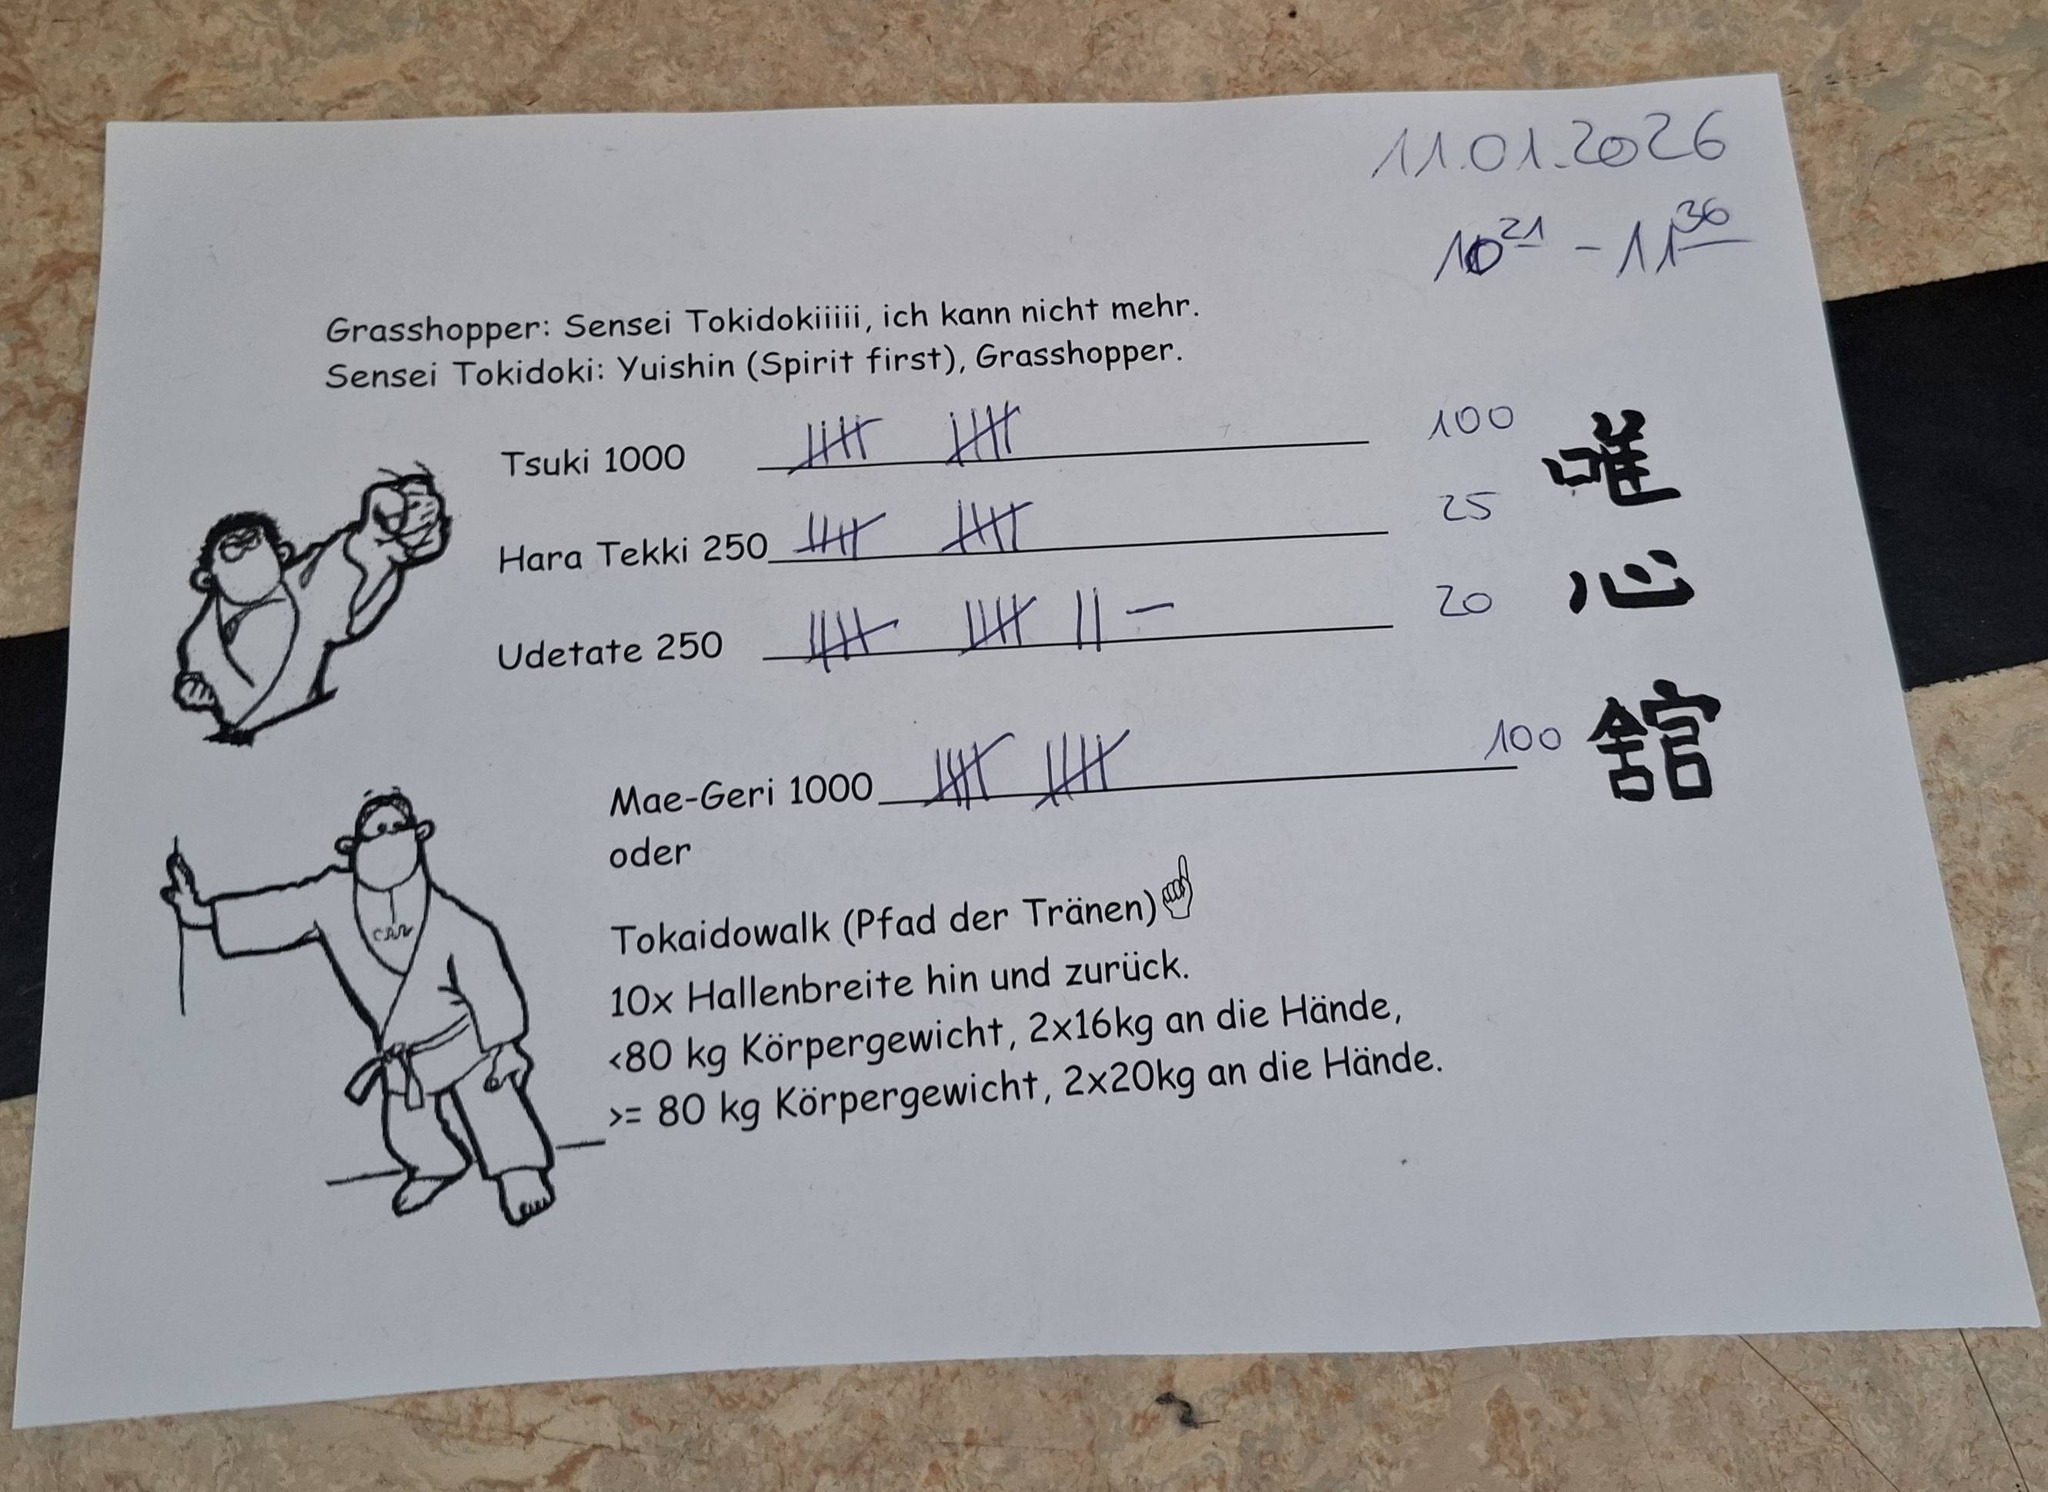 11.01.2026
10 21 - 11 36
Grasshopper: Sensei Tokidokiiiii, ich kann nicht mehr.
Sensei Tokidoki: Yuishin (Spirit first), Grasshopper.
Tsuki 1000 100
Hara Tekki 250 25
Udetate 250 20
Mae-Geri 1000 100
oder
Tokaidowalk (Pfad der Tränen)
10x Hallenbreite hin und zurück.
<80 kg Körpergewicht, 2x16kg an die Hände,
>= 80 kg Körpergewicht, 2x20kg an die Hände.
唯
心
舘